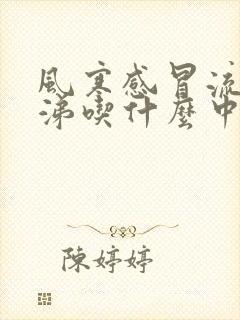 風寒感冒流
涕喫什麼中
陳婷婷